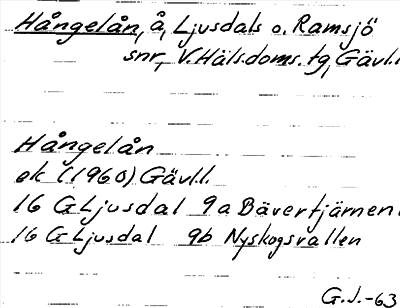 Hångelån, å, Ljusdals o. Ramsjö
snr, V. Häls. doms. tg, Gävl.l.
Hångelån
ek (1960) Gävl.l.
16 G Ljusdal 9a Bävertjärnen
16 G Ljusdal 9b Nyskogsvallen
G.J.-63